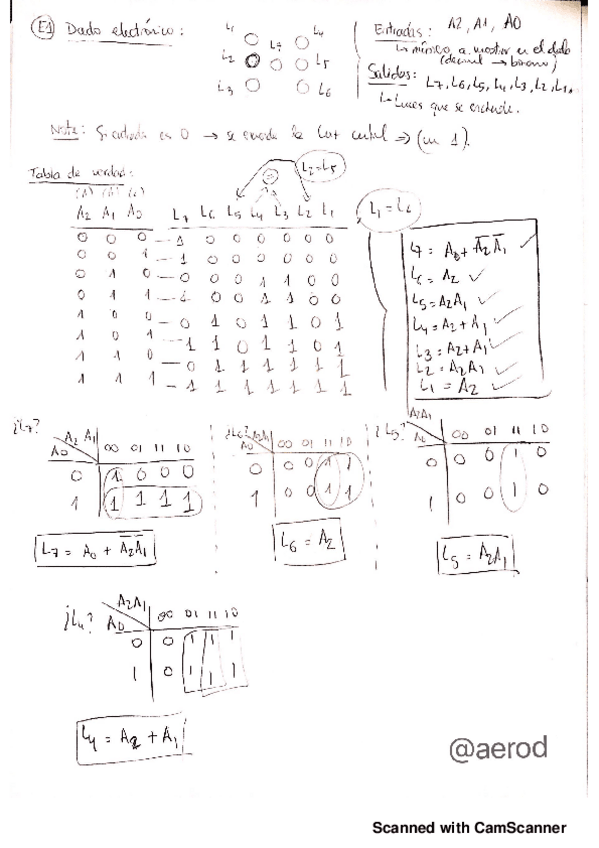 E1 Dado electrónico:
L1 L4
L7
L2 L5
L3 L6
Entradas: A2, A1, A0
↳ número a mostrar en el dado
(decimal → binario)
Salidas: L7, L6, L5, L4, L3, L2, L1
↳ Luces que se encienden.
Nota: Si entrada es 0 → se enciende la luz central ⇒ (un 1).
Tabla de verdad:
L2=L5
A2 A1 A0 L7 L6 L5 L4 L3 L2 L1
L1=L6
0 0 0 — 1 0 0 0 0 0 0
0 0 1 — 1 0 0 0 0 0 0
0 1 0 — 0 0 0 1 1 0 0
0 1 1 — 1 0 0 1 1 0 0
1 0 0 — 0 1 0 1 1 0 1
1 0 1 — 1 1 0 1 1 0 1
1 1 0 — 0 1 1 1 1 1 1
1 1 1 — 1 1 1 1 1 1 1
L7 = A0 + A̅2̅A̅1̅ ✓
L6 = A2 ✓
L5 = A2A1 ✓
L4 = A2 + A1 ✓
L3 = A2 + A1 ✓
L2 = A2A1 ✓
L1 = A2 ✓
¿L7?
A2 A1
A0 00 01 11 10
0 1 0 0 0
1 1 1 1 1
L7 = A0 + A̅2̅A̅1̅
¿L6?
A2A1
A0 00 01 11 10
0 0 0 1 1
1 0 0 1 1
L6 = A2
¿L5?
A2A1
A0 00 01 11 10
0 0 0 1 0
1 0 0 1 0
L5 = A2A1
¿L4?
A2A1
A0 00 01 11 10
0 0 1 1 1
1 0 1 1 1
L4 = A2 + A1
@aerod
Scanned with CamScanner